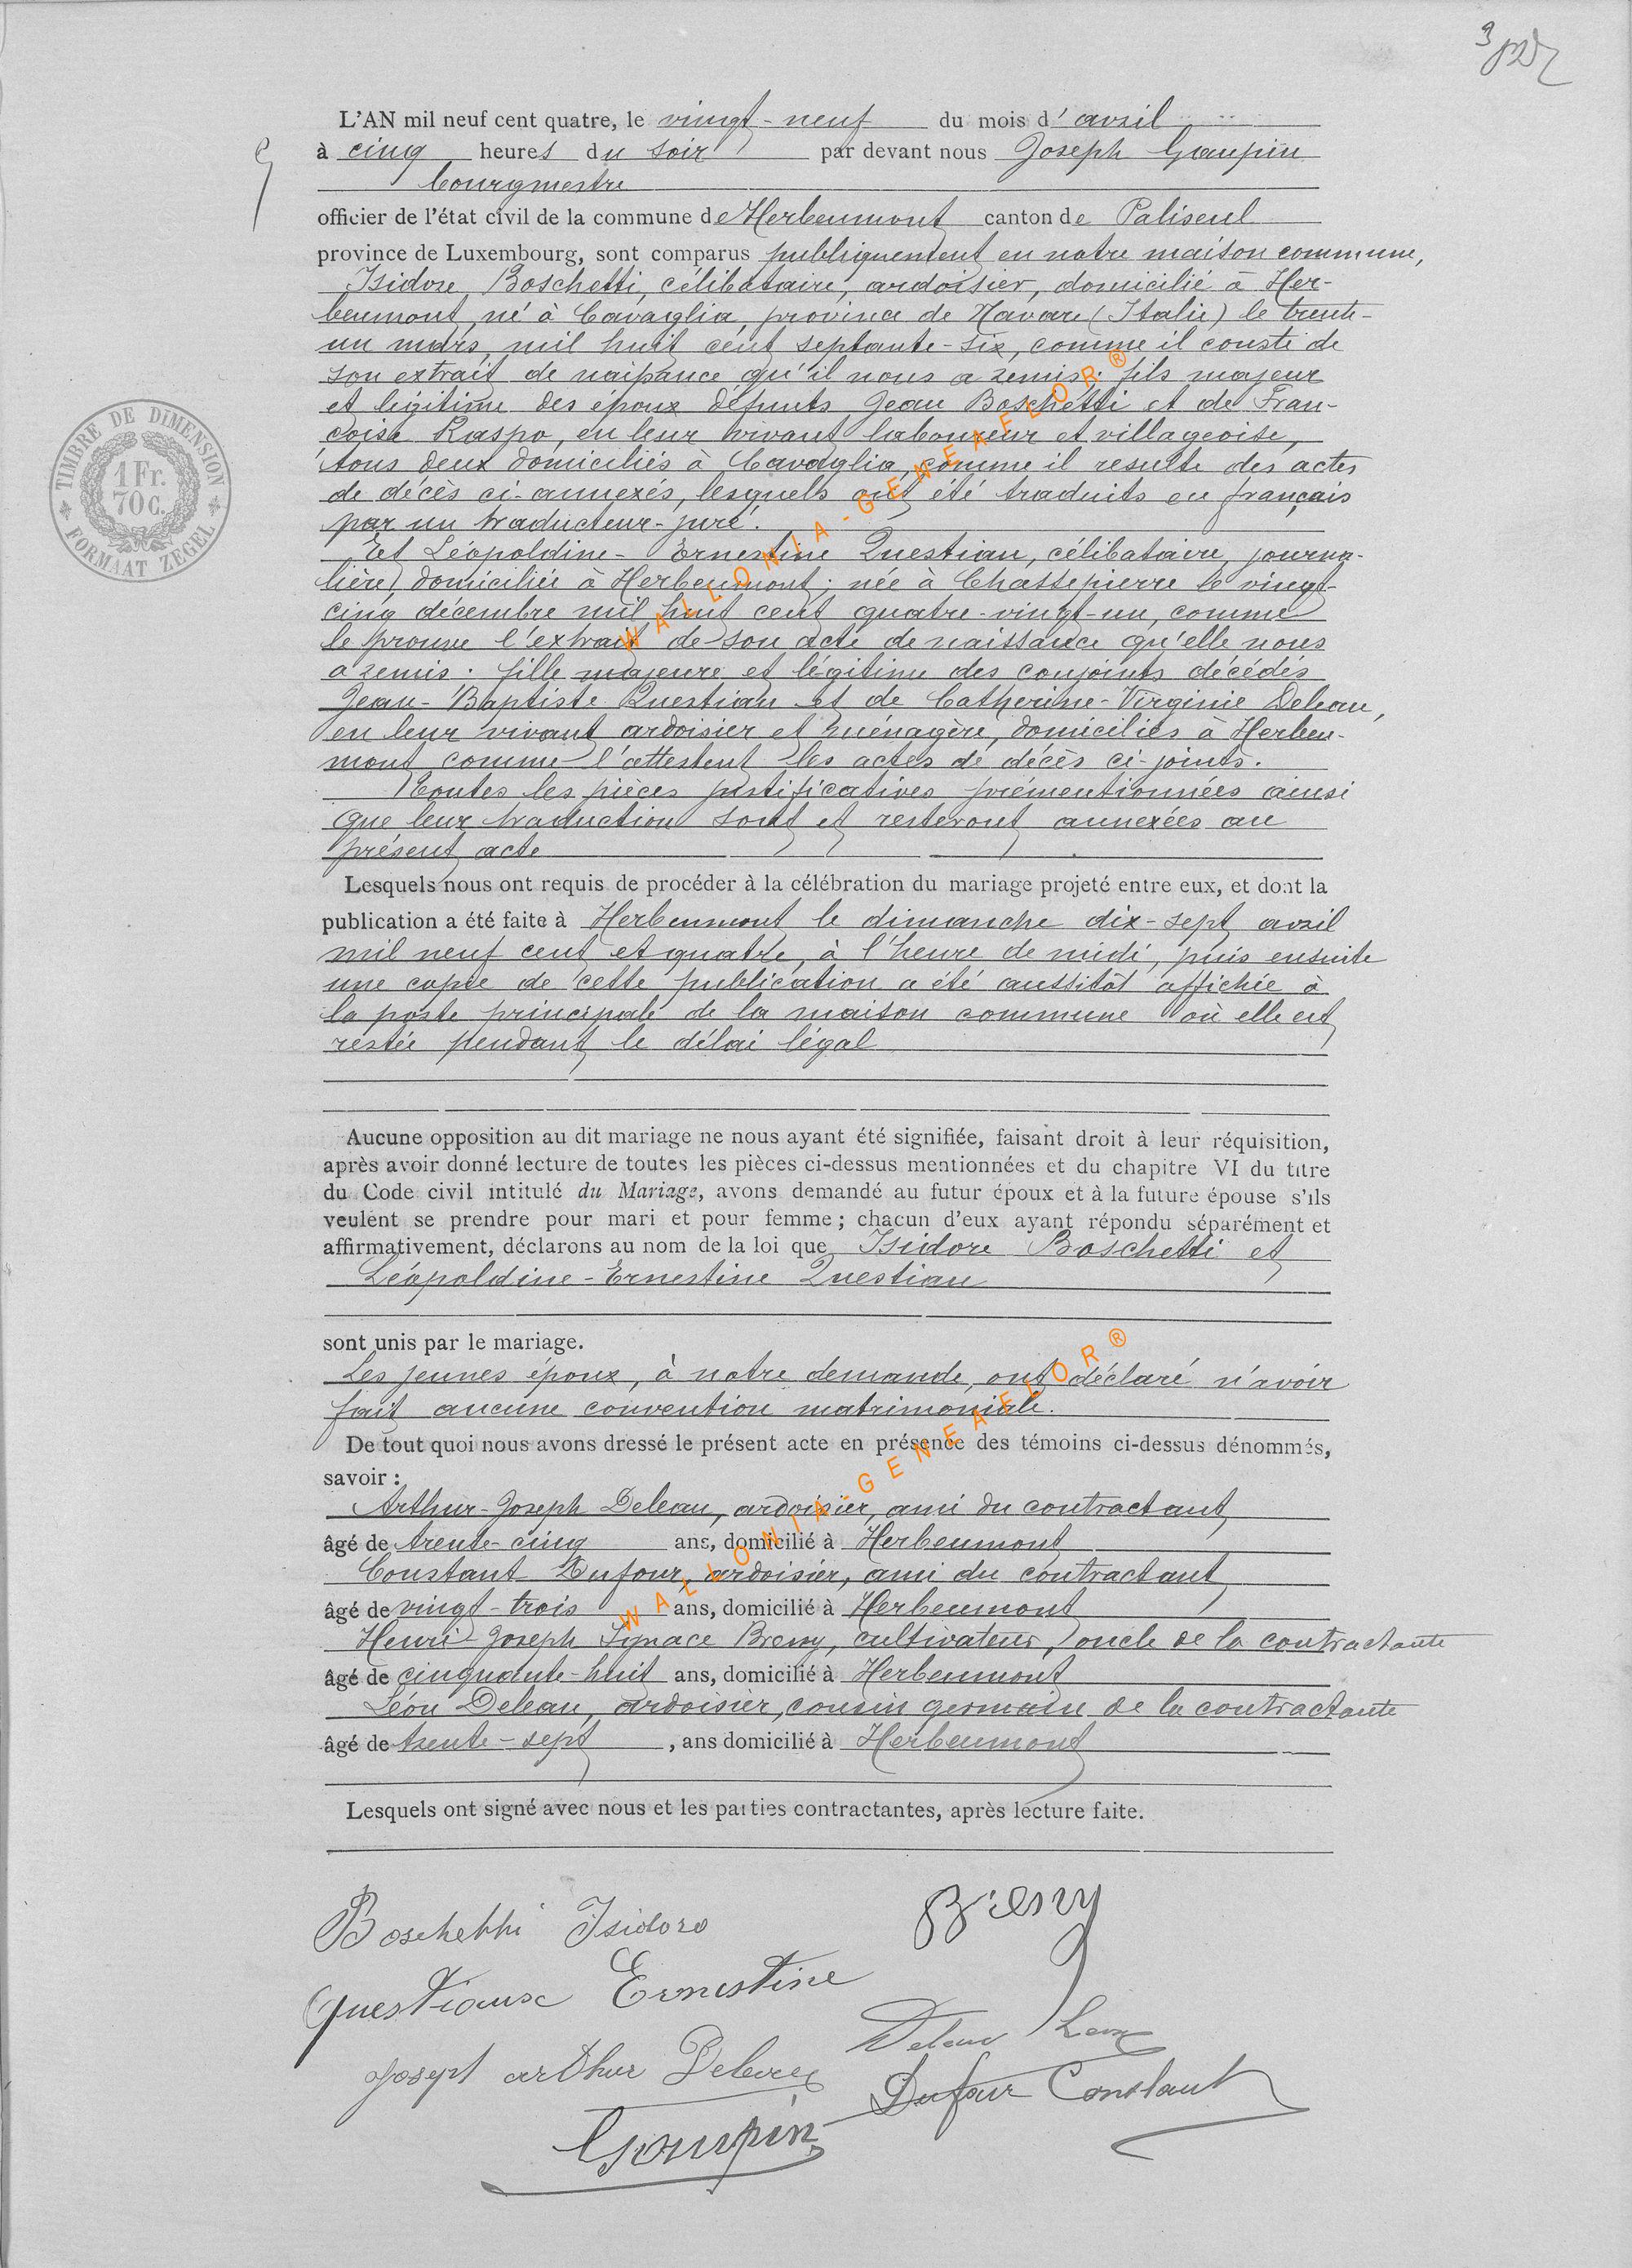 L'AN mil neuf cent quatre, le vingt-neuf du mois d'avril
à cinq heures du soir par devant nous Joseph Goupin
bourgmestre
officier de l'état civil de la commune de Herbeumont canton de Paliseul
province de Luxembourg, sont comparus publiquement en notre maison commune,
Isidore Boschetti, célibataire, ardoisier, domicilié à Her-
beumont, né à Cavaglia, province de Navare (Italie) le trente-
un mars, mil huit cent septante-six, comme il conste de
son extrait de naissance qu'il nous a remis; fils majeur
et légitime des époux défunts Jean Boschetti et de Fran-
çoise Raspo, en leur vivant laboureur et villageoise,
tous deux domiciliés à Cavaglia, comme il resulte des actes
de décès ci-annexés, lesquels ont été traduits en français
par un traducteur-juré.
Et Léopoldine-Ernestine Questiau, célibataire, journa-
lière, domiciliée à Herbeumont; née à Chassepierre le vingt-
cinq décembre mil huit cent quatre-vingt-un, comme
le prouve l'extrait de son acte de naissance qu'elle nous
a remis: fille majeure et légitime des conjoints décédés
Jean-Baptiste Questiau et de Catherine-Virginie Deleau,
en leur vivant ardoisier et ménagère, domiciliés à Herbeu-
mont comme l'attestent les actes de décès ci-joints.
Toutes les pièces justificatives prémentionnées ainsi
que leur traduction sont et resteront annexées au
présent acte
Lesquels nous ont requis de procéder à la célébration du mariage projeté entre eux, et dont la
publication a été faite à Herbeumont le dimanche dix-sept avril
mil neuf cent et quatre, à l'heure de midi, puis ensuite
une copie de cette publication a été aussitôt affichée à
la porte principale de la maison commune où elle est
restée pendant le délai légal
Aucune opposition au dit mariage ne nous ayant été signifiée, faisant droit à leur réquisition,
après avoir donné lecture de toutes les pièces ci-dessus mentionnées et du chapitre VI du titre
du Code civil intitulé du Mariage, avons demandé au futur époux et à la future épouse s'ils
veulent se prendre pour mari et pour femme; chacun d'eux ayant répondu séparément et
affirmativement, déclarons au nom de la loi que Isidore Boschetti et
Léopoldine-Ernestine Questiau
sont unis par le mariage.
Les jeunes époux, à notre demande, ont déclaré n'avoir
fait aucune convention matrimoniale.
De tout quoi nous avons dressé le présent acte en présence des témoins ci-dessus dénommés,
savoir:
Arthur-Joseph Deleau, ardoisier, ami du contractant
âgé de trente-cinq ans, domicilié à Herbeumont
Constant Dufour, ardoisier, ami du contractant
âgé de vingt-trois ans, domicilié à Herbeumont
Henri-Joseph Ignace Bremy, cultivateur, oncle de la contractante
âgé de cinquante-huit ans, domicilié à Herbeumont
Léon Deleau, ardoisier, cousin germain de la contractante
âgé de trente-sept, ans domicilié à Herbeumont
Lesquels ont signé avec nous et les parties contractantes, après lecture faite.
Boschetti Isidoro
Questiaux Ernestine
Joseph arthur Deleau
Deleau Leon
Dufour Constant
Goupin
TIMBRE DE DIMENSION
1 Fr.
70 C.
FORMAAT ZEGEL
WALLONIA-GENEAFLOR®
WALLONIA-GENEAFLOR®